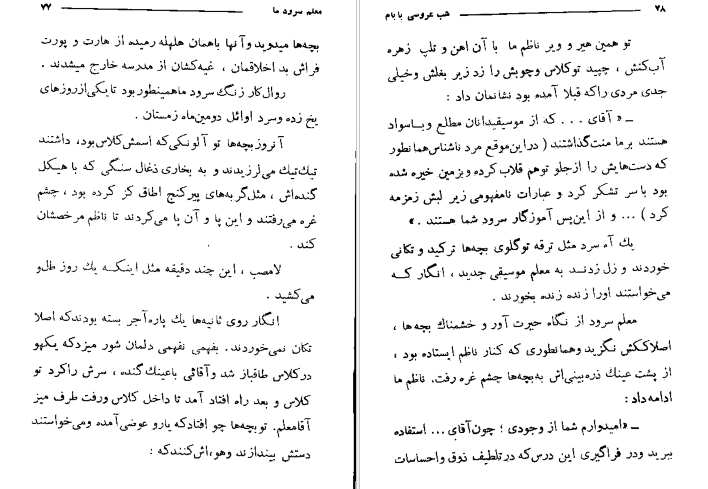 معلم سرود ما ۷۷
بچه‌ها میدوید وآنها باهمان هلهله رمیده از هارت و پورت
فراش بد اخلاقمان ، غیه‌کشان از مدرسه خارج میشدند .
روال‌کار زنگ سرود ماهمینطور بود تایکی‌ازروزهای
یخ زده وسرد اوائل دومین‌ماه زمستان .
آنروز بچه‌ها تو آلونکی‌که اسمش‌کلاس‌بود، داشتند
تیك‌تیك می‌لرزیدند و به بخاری ذغال سنگی که با هیکل
گنده‌اش ، مثل‌گربه‌های پیرکنج اطاق کز کرده بود ، چشم
غره می‌رفتند و این پا و آن پا می‌کردند تا ناظم مرخصشان
کند .
لامصب ، این چند دقیقه مثل اینکه یك روز طول
می‌کشید .
انگار روی ثانیه‌ها یك پاره‌آجر بسته بودندکه اصلا
تکان نمی‌خوردند. بفهمی نفهمی دلمان شور میزدکه یکهو
درکلاس طاقباز شد وآقائی باعینك‌گنده ، سرش راکرد تو
کلاس و بعد راه افتاد آمد تا داخل کلاس ورفت طرف میز
آقامعلم. توبچه‌ها چو افتادکه یارو عوضی‌آمده ومی‌خواستند
دستش بیندازند وهو،اش‌کنندکه :
۷۸ شب عروسی بابام
تو همین هیر و ویر ناظم ما با آن اهن و تلپ زهره
آب‌کنش ، چپید توکلاس وچوبش را زد زیر بغلش وخیلی
جدی مردی راکه قبلا آمده بود نشانمان داد :
ــ « آقای ... که از موسیقیدانان مطلع وبا‌سواد
هستند برما منت‌گذاشتند ( دراین‌موقع مرد ناشناس‌همانطور
که دست‌هایش را ازجلو توهم قلاب کرده وبزمین خیره شده
بود با سر تشکر کرد و عبارات نامفهومی زیر لبش زمزمه
کرد ) ... و از این‌پس آموزگار سرود شما هستند . »
یك آه سرد مثل ترقه توگلوی بچه‌ها ترکید و تکانی
خوردند و زل زدند به معلم موسیقی جدید ، انگار که
می‌خواستند اورا زنده زنده بخورند .
معلم سرود از نگاه حیرت آور و خشمناك بچه‌ها ،
اصلاککش نگزید وهمانطوری که کنار ناظم ایستاده بود ،
از پشت عینك ذره‌بینی‌اش به‌بچه‌ها چشم غره رفت. ناظم ما
ادامه‌داد :
ــ «امیدوارم شما از وجودی ؛ چون‌آقای ... استفاده
ببرید ودر فراگیری این درس‌که درتلطیف ذوق واحساسات